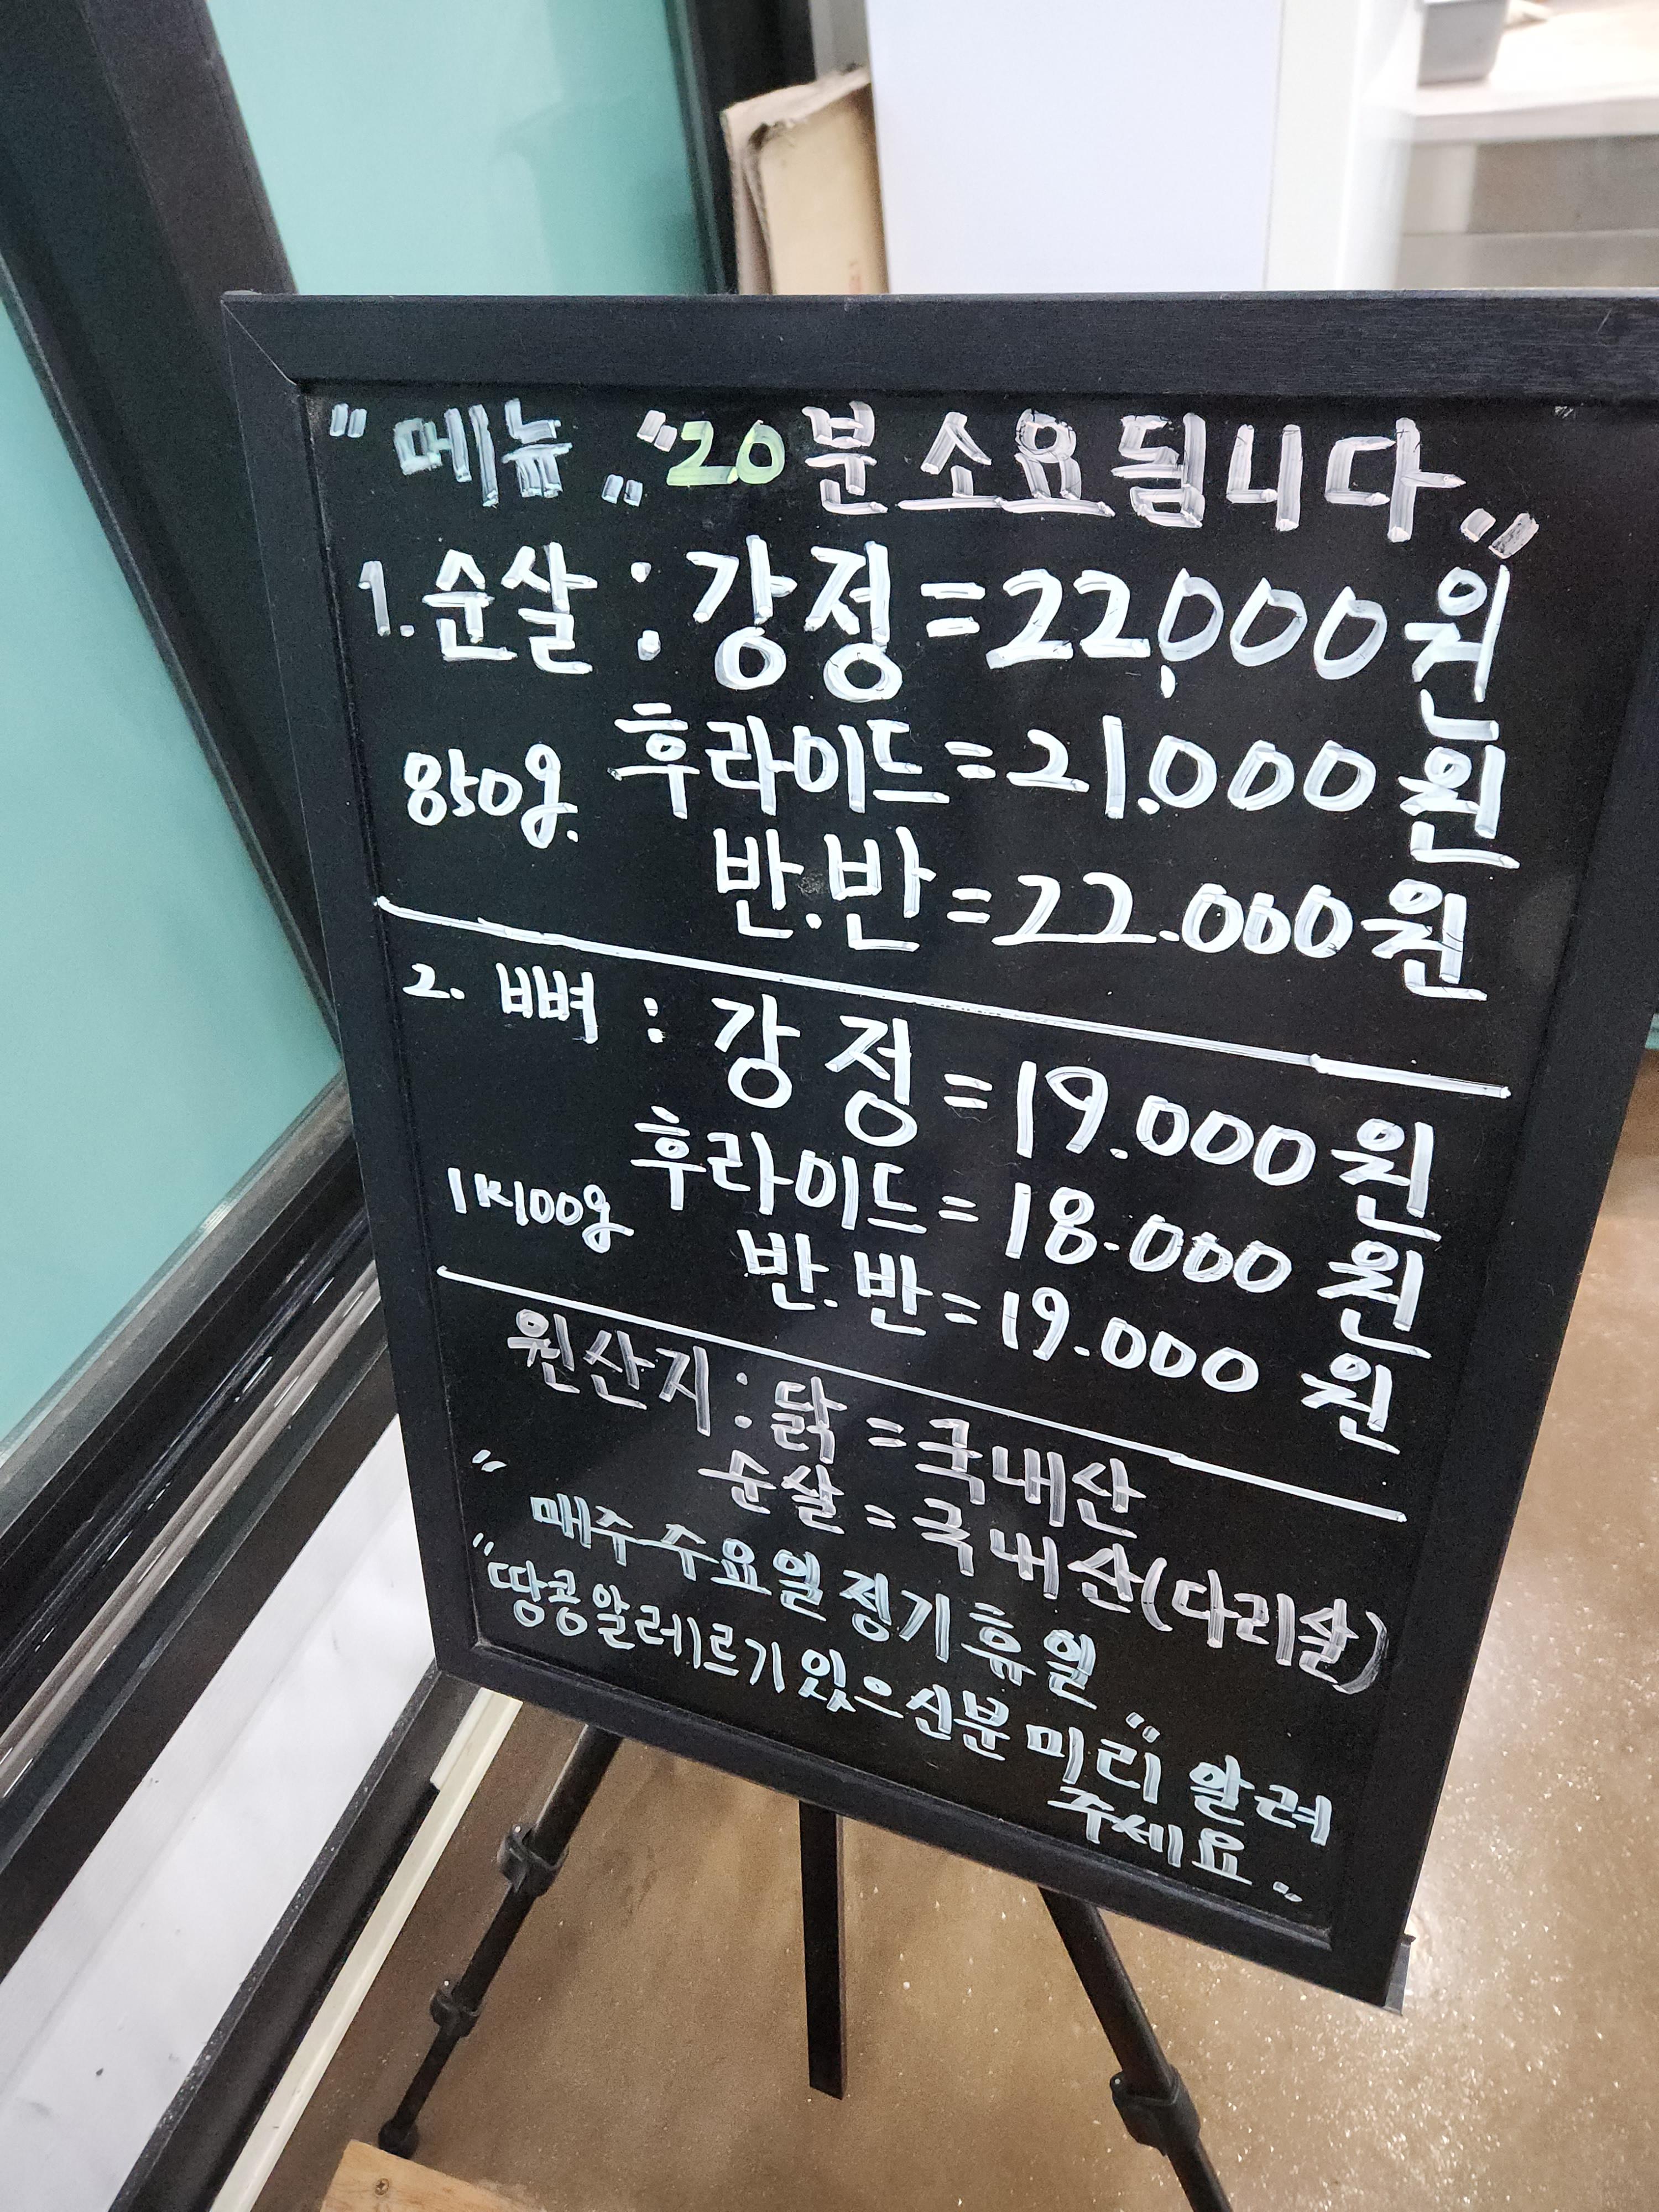 "메뉴" "20분 소요됩니다"
1. 순살 : 강정 = 22,000원
850g. 후라이드 = 21.000원
반.반 = 22.000원
2. 뼈 : 강정 = 19.000원
1K100g 후라이드 = 18.000원
반.반 = 19.000원
원산지 : 닭 = 국내산
순살 = 국내산(다리살)
"매주 수요일 정기휴일"
"땅콩알레르기있으신분 미리 알려
주세요"